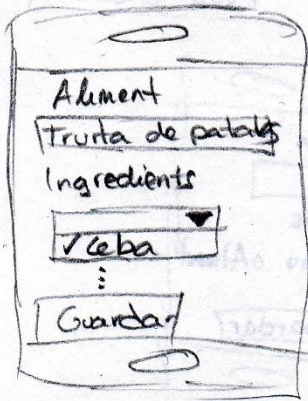 Aliment
Truita de patates
Ingredients
✓ Ceba
⋮
Guardar